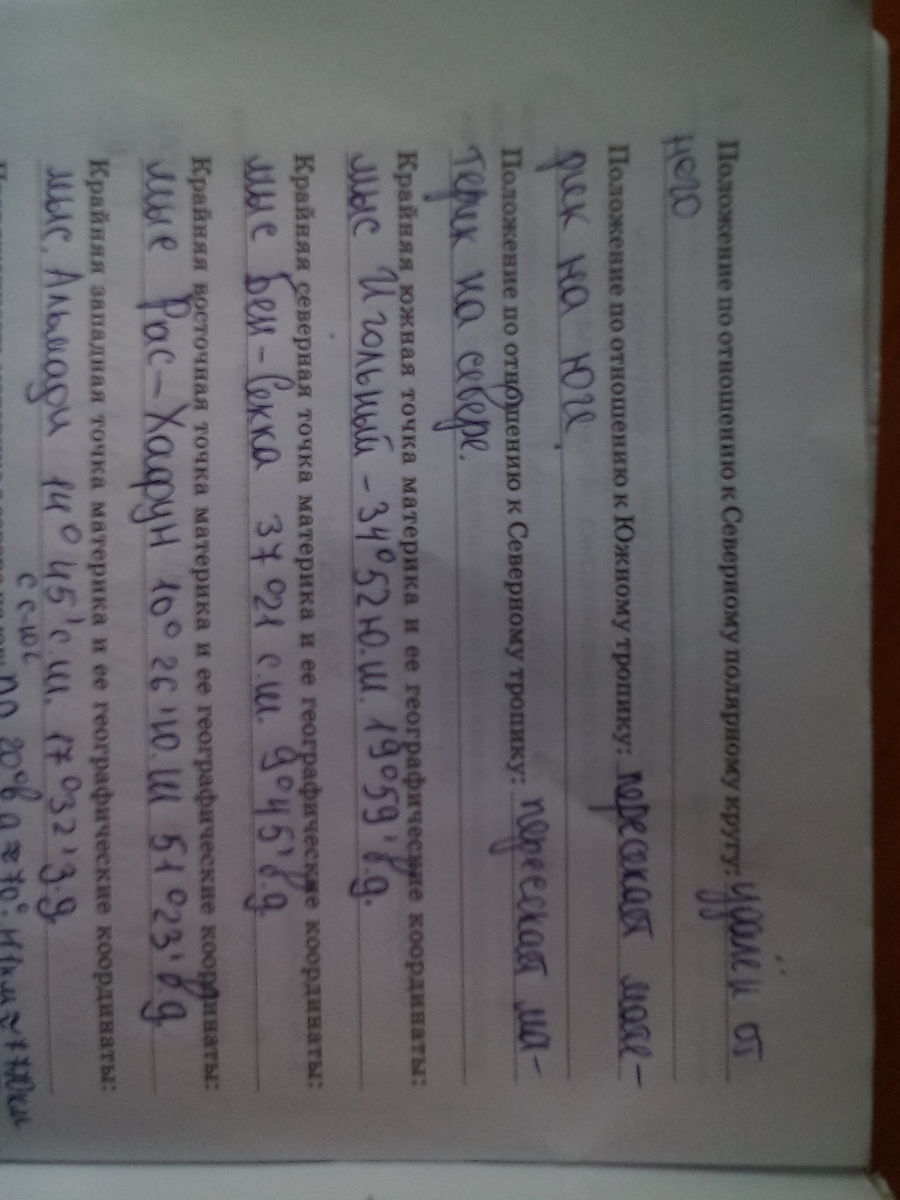 Положение по отношению к Северному полярному кругу: удалён от
него
Положение по отношению к Южному тропику: пересекает мате-
рик на юге.
Положение по отношению к Северному тропику: пересекает ма-
терик на севере.
Крайняя южная точка материка и ее географические координаты:
мыс Игольный - 34°52 ю.ш. 19°59' в.д.
Крайняя северная точка материка и ее географические координаты:
мыс Бен-Секка 37°21 с.ш. 9°45' в.д.
Крайняя восточная точка материка и ее географические координаты:
мыс Рас-Хафун 10° 26' ю.ш 51°23' в.д.
Крайняя западная точка материка и ее географические координаты:
мыс. Альмади 14° 45' с.ш. 17°32' з.д.
по 20°в